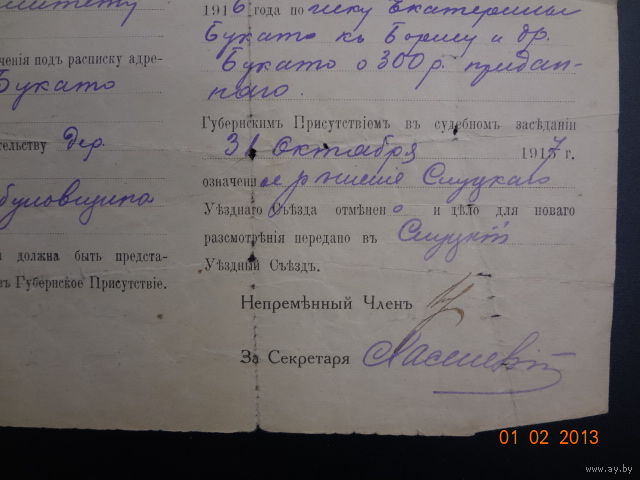 1916 года по иску Екатерины
Букато къ Борису и др.
Букато о 300 р. придан-
наго.
ченія подъ расписку адре-
Букато
Губернскимъ Присутствіемъ въ судебномъ засѣданіи
31 Октября 1917 г.
тельству дер.
означенное рѣшеніе Слуцкаго
Уѣзднаго Съѣзда отмѣнено и дѣло для новаго
разсмотрѣнія передано въ Слуцкій
Уѣздный Съѣздъ.
должна быть предста-
въ Губернское Присутствіе.
Непремѣнный Членъ
За Секретаря
01 02 2013
www.ay.by